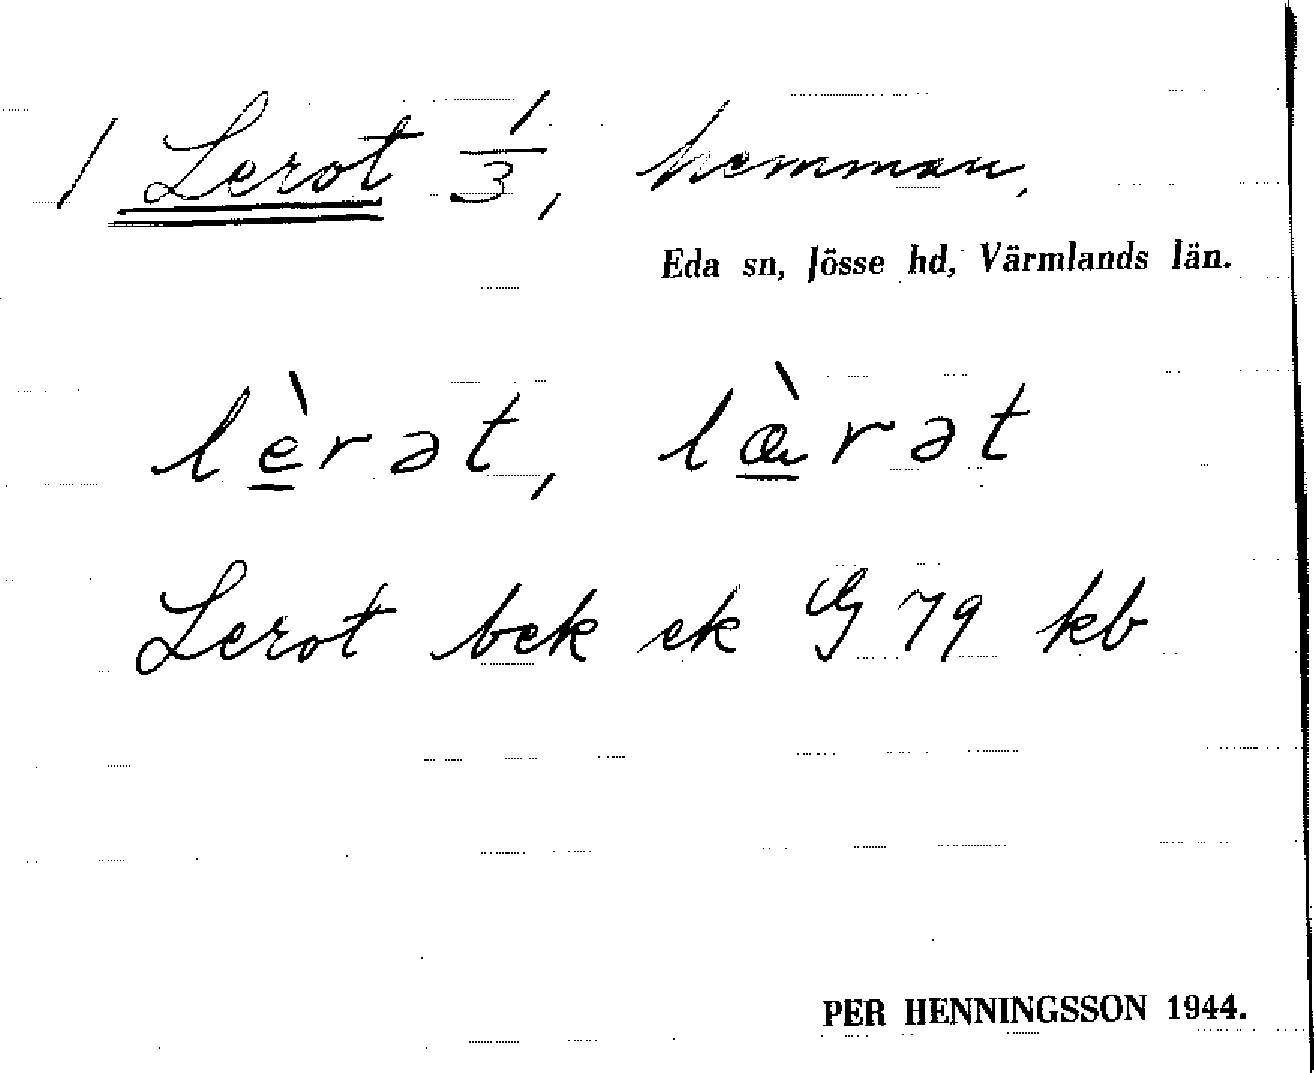 1 Lerot 1/3, hemman,
Eda sn, Jösse hd, Värmlands län.
lèrət, læ̀rət
Lerot bek ek G 79 kb
PER HENNINGSSON 1944.